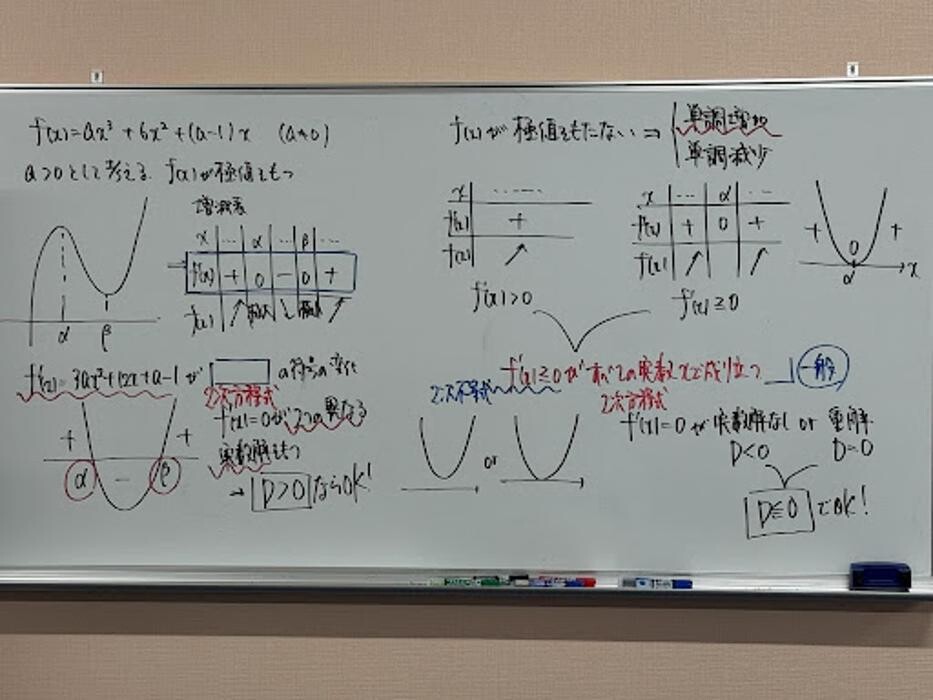 f(x)=ax³+6x²+(a-1)x (a≠0)
a>0として考える. f(x)が極値をもつ
増減表
x … α … β …
f'(x) + 0 - 0 +
f(x) ↗ 極大 ↘ 極小 ↗
α β
f'(x)=3ax²+12x+a-1が
の符号の変化
2次方程式
f'(x)=0が2つの異なる
実数解をもつ
→ D>0ならOK!
+ α - β +
f(x)が極値をもたない ⇒
単調増加
単調減少
x ……
f'(x) +
f(x) ↗
f'(x)>0
x … α …
f'(x) + 0 +
f(x) ↗ ↗
f'(x)≧0
+ 0 +
α x
f'(x)≧0がすべての実数xで成り立つ
一般
2次不等式
2次方程式
f'(x)=0が実数解なし or 重解
D<0 D=0
or
D≦0でOK!